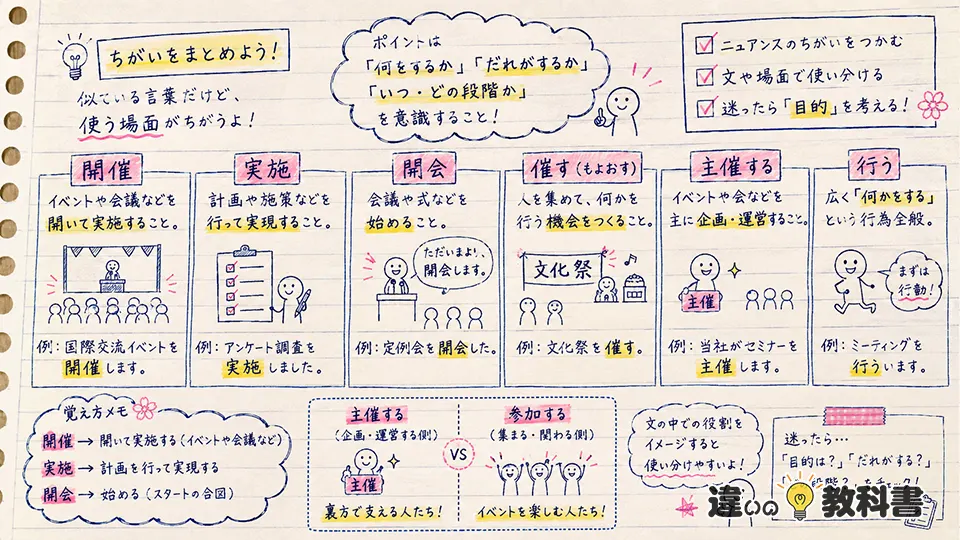 ちがいをまとめよう!
似ている言葉だけど、
使う場面がちがうよ!
ポイントは
「何をするか」「だれがするか」
「いつ・どの段階か」
を意識すること!
ニュアンスのちがいをつかむ
文や場面で使い分ける
迷ったら「目的」を考える!
開催
イベントや会議などを
開いて実施すること。
例:国際交流イベントを
開催します。
実施
計画や施策などを
行って実現すること。
例:アンケート調査を
実施しました。
開会
会議や式などを
始めること。
ただいまより、
開会します。
例:定例会を開会した。
催す(もよおす)
人を集めて、何かを
行う機会をつくること。
文化祭
例:文化祭を催す。
主催する
イベントや会などを
主に企画・運営すること。
主催
例:当社がセミナーを
主催します。
行う
広く「何かをする」
という行為全般。
まずは
行動!
例:ミーティングを
行います。
覚え方メモ
開催 → 開いて実施する(イベントや会議など)
実施 → 計画を行って実現する
開会 → 始める(スタートの合図)
主催する
(企画・運営する側)
主催
裏方で支える人たち!
VS
参加する
(集まる・関わる側)
イベントを楽しむ人たち!
文の中での役割を
イメージすると
使い分けやすいよ!
迷ったら…
「目的は?」「だれがする?」
違いの教科書